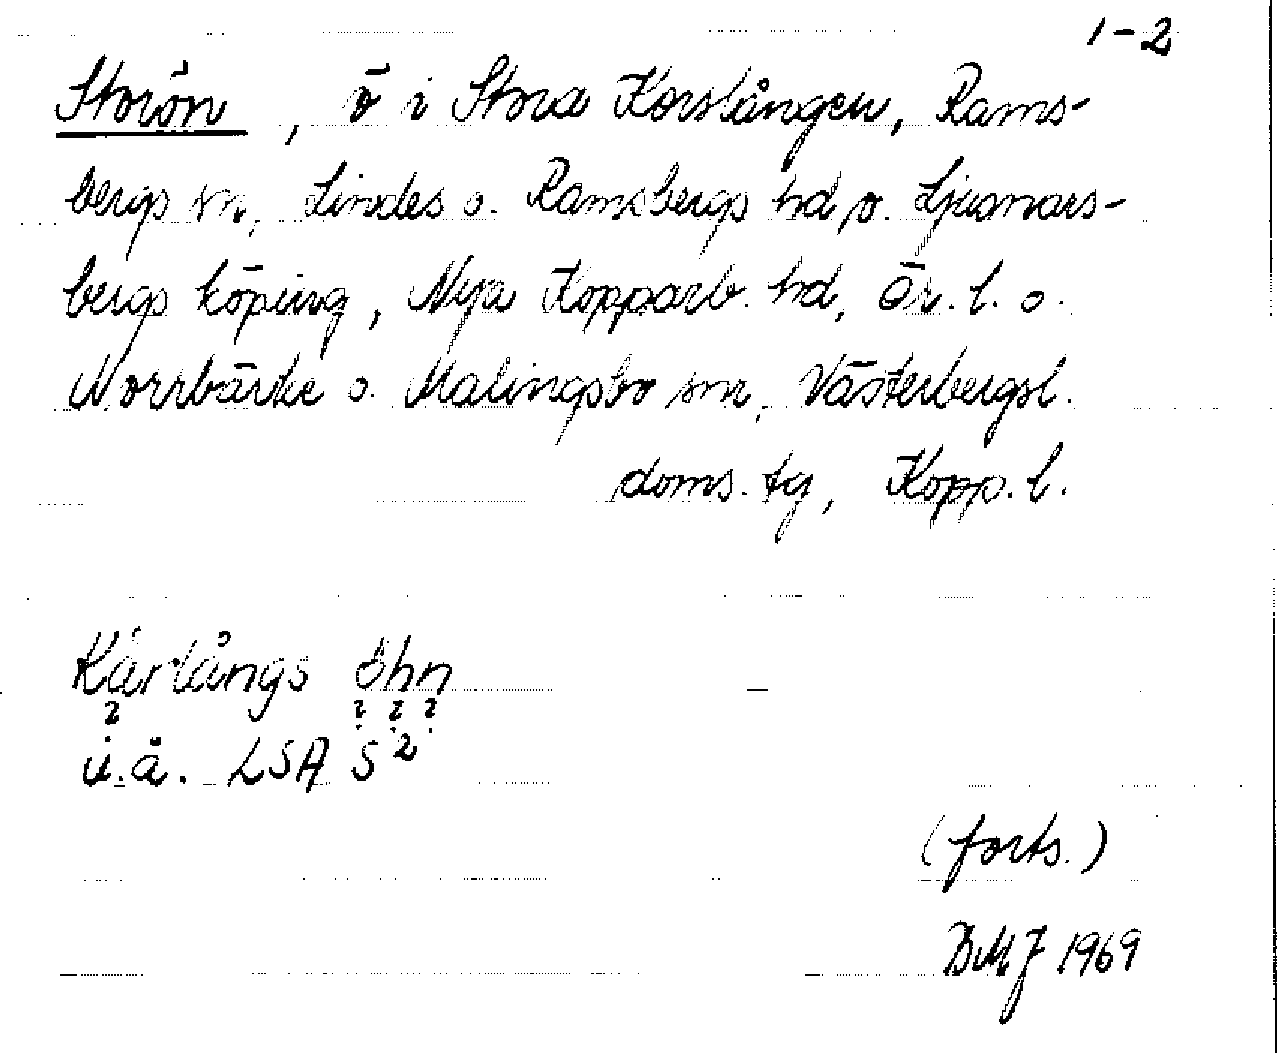 1-2
Storön, ö i Stora Korslången, Rams-
bergs sn, Lindes o. Ramsbergs hd o. Ljusnars-
bergs köping, Nya Kopparb. hd, Ör. l. o.
Norrbärke o. Malingsbo snr, Västerbergsl.
doms. tg, Kopp. l.
Kårlångs öhn
? ? ? ?
u.å. LSA S²
(forts.)
BMJ 1969